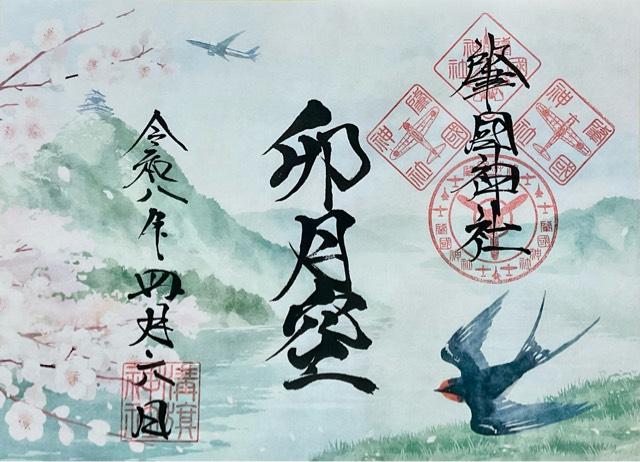 肇國神社
卯月空
令和八年四月六日